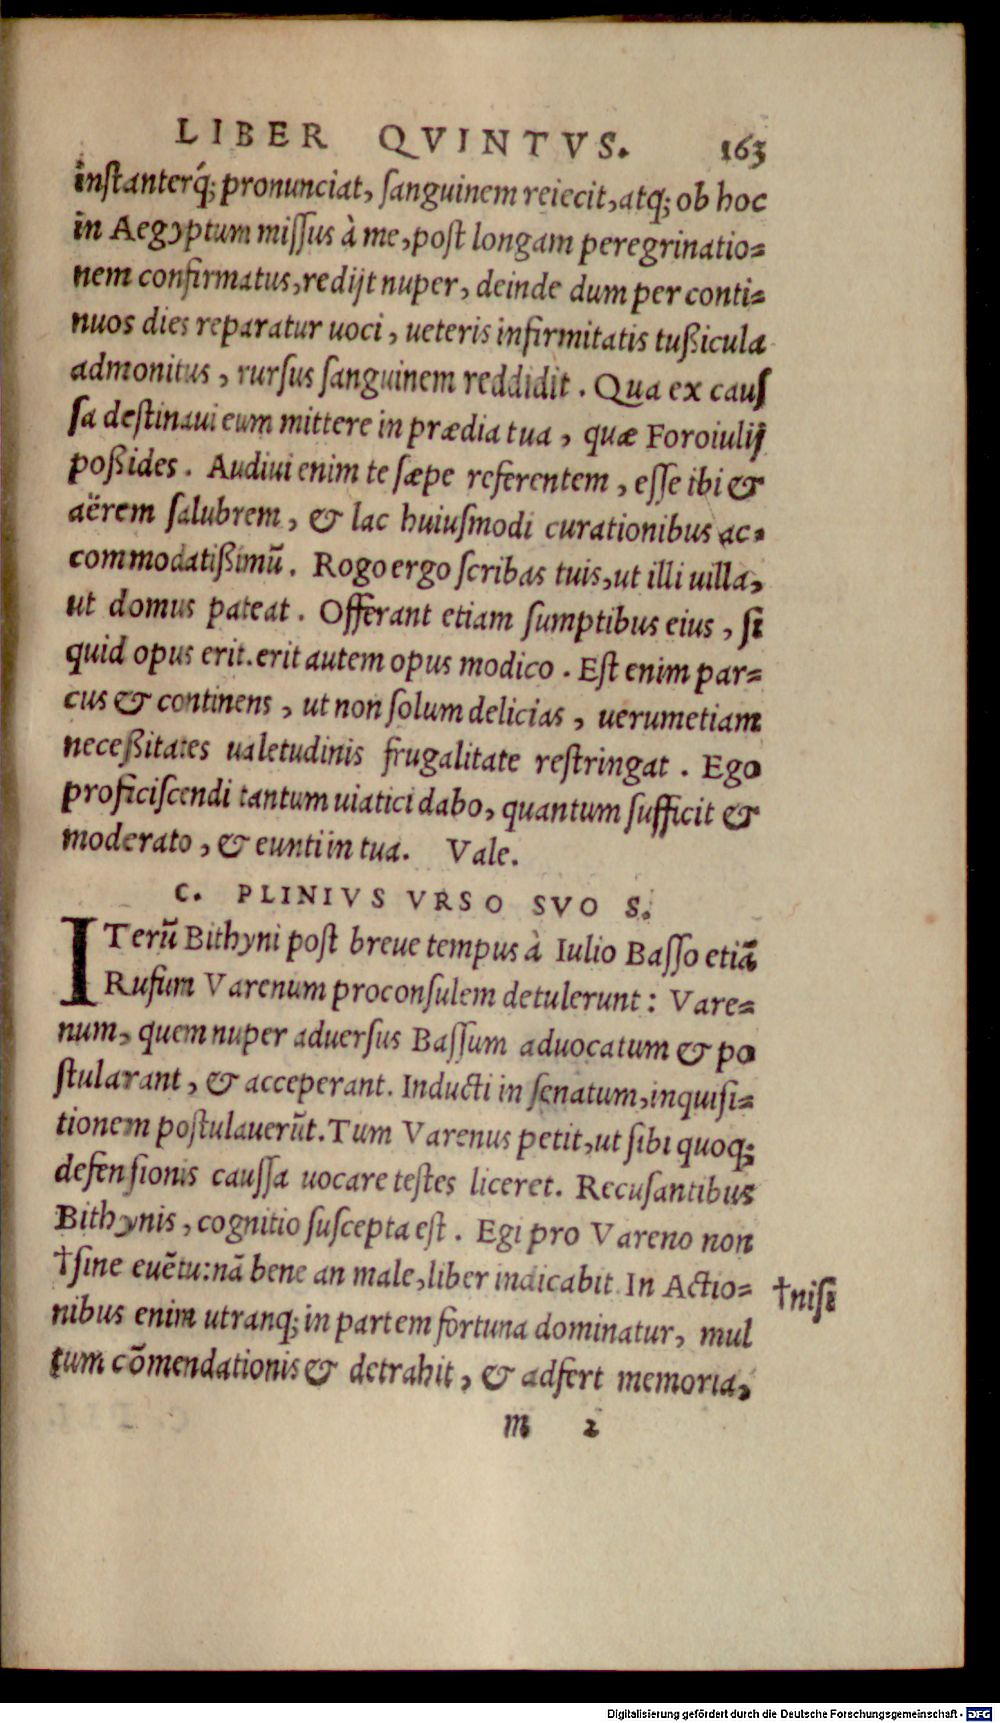 LIBER QVINTVS. 163
inſtanterq́; pronunciat, ſanguinem reiecit, atq; ob hoc
in Aegyptum miſſus à me, poſt longam peregrinatio=
nem confirmatus, redijt nuper, deinde dum per conti=
nuos dies reparatur uoci, ueteris infirmitatis tußicula
admonitus, rurſus ſanguinem reddidit. Qua ex cauſ
ſa deſtinaui eum mittere in prædia tua, quæ Foroiulij
poßides. Audiui enim te ſæpe referentem, eſſe ibi &
aërem ſalubrem, & lac huiuſmodi curationibus ac=
commodatißimũ. Rogo ergo ſcribas tuis, ut illi uilla,
ut domus pateat. Offerant etiam ſumptibus eius, ſi
quid opus erit. erit autem opus modico. Eſt enim par=
cus & continens, ut non ſolum delicias, uerumetiam
neceßitates ualetudinis frugalitate reſtringat. Ego
proficiſcendi tantum uiatici dabo, quantum ſufficit &
moderato, & eunti in tua. Vale.
C. PLINIVS VRSO SVO S.
ITerũ Bithyni poſt breue tempus à Iulio Baſſo etiã
Rufum Varenum proconſulem detulerunt: Vare=
num, quem nuper aduerſus Baſſum aduocatum & po
ſtularant, & acceperant. Inducti in ſenatum, inquiſi=
tionem poſtulauerũt. Tum Varenus petit, ut ſibi quoq;
defenſionis cauſſa uocare teſtes liceret. Recuſantibus
Bithynis, cognitio ſuſcepta eſt. Egi pro Vareno non
†ſine euẽtu: nã bene an male, liber indicabit. In Actio= †niſi
nibus enim utranq; in partem fortuna dominatur, mul
tum cõmendationis & detrahit, & adfert memoria,
m 2
Digitalisierung gefördert durch die Deutsche Forschungsgemeinschaft - DFG